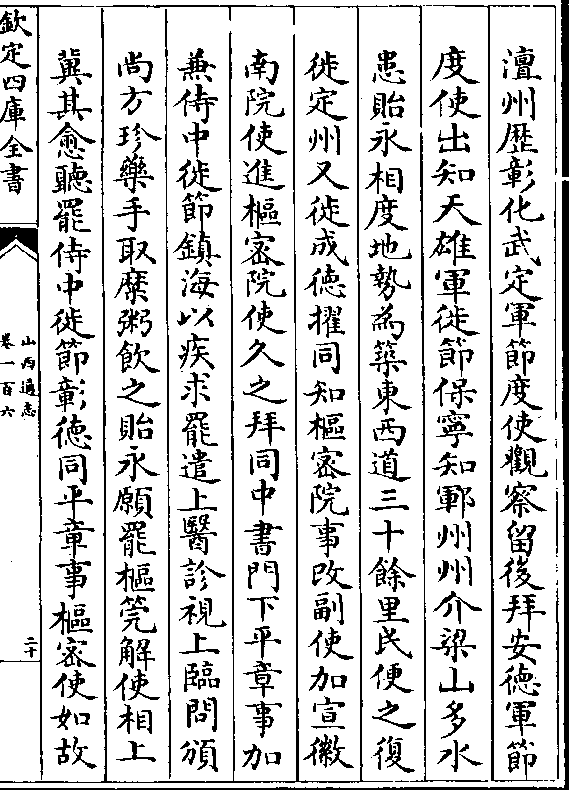 澶州歴彰化武定軍節度使觀察留後拜安德軍節
度使出知天雄軍徙節保寧知鄆州州介梁山多水
患貽永相度地勢為築東西道三十餘里民便之復
徙定州又徙成德擢同知樞密院事改副使加宣徽
南院使進樞密院使久之拜同中書門下平章事加
兼侍中徙節鎮海以疾求罷遣上醫診視上臨問頒
尚方珍藥手取糜粥飲之貽永願罷樞筦解使相上
冀其愈聽罷侍中徙節彰德同平章事樞密使如故
欽定四庫全書
山西通志
卷一百六
二十